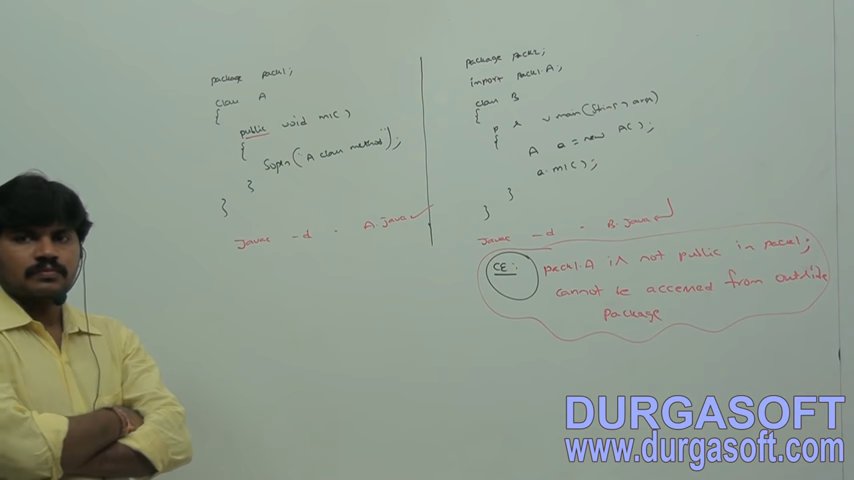 package pack1;
class A
{
public void m1()
{
Sopln("A class method");
}
}
javac -d . A.java
package pack2;
import pack1.A;
class B
{
p s v main(String[] args)
{
A a = new A();
a.m1();
}
}
javac -d . B.java
CE: pack1.A is not public in pack1;
cannot be accessed from outside
package
DURGASOFT
www.durgasoft.com